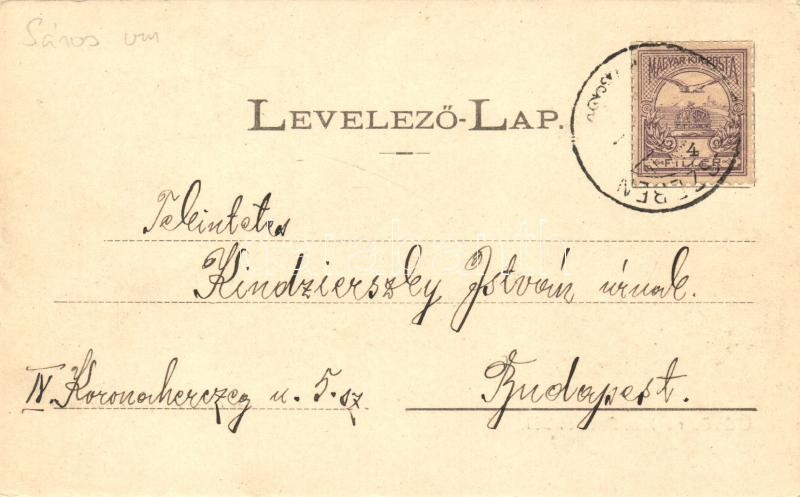 Sáros vm
MAGYAR KIR. POSTA
4
FILLÉR
LEVELEZŐ-LAP.
Tekintetes
Kindzierszky István úrnak.
IV. Koronaherczeg u. 5. sz
Budapest.